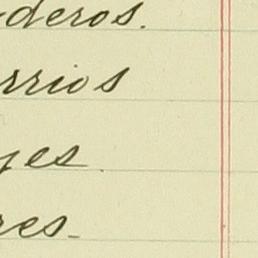 deros.
rrios
yes
res_